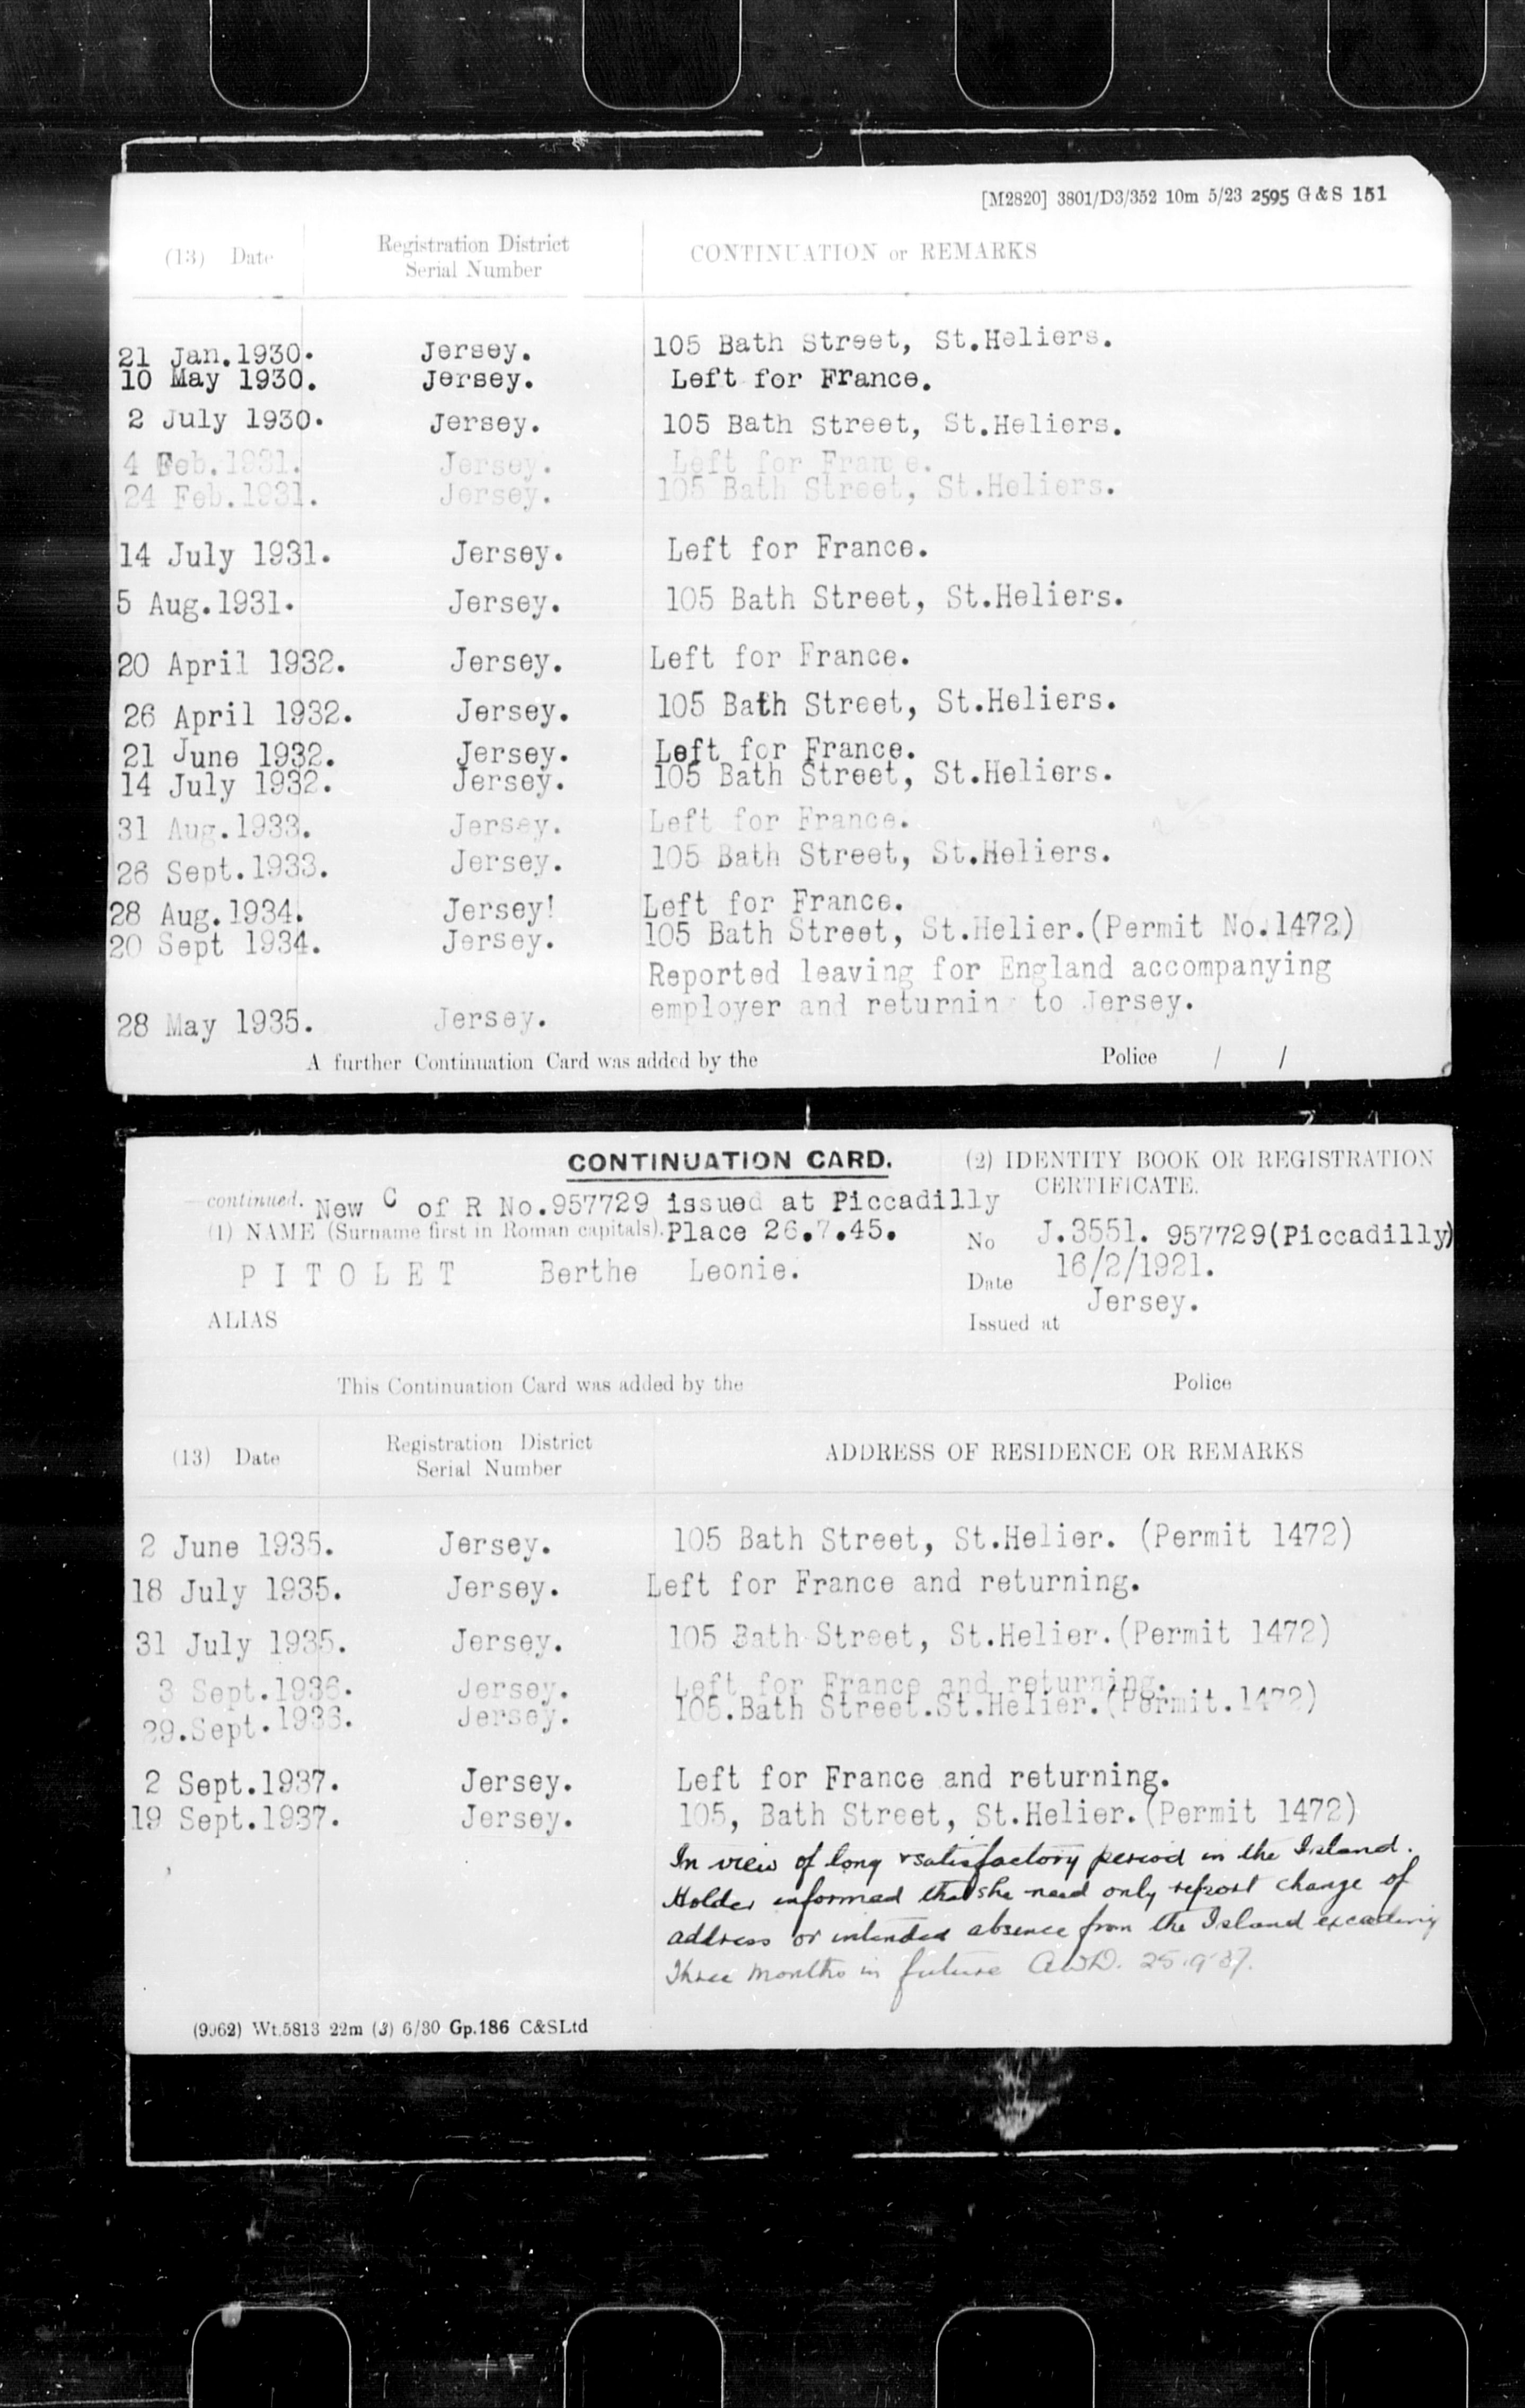 [M2820] 3801/D3/352 10m 5/23 2595 G & S 151
(13) Date Registration District Serial Number CONTINUATION or REMARKS
21 Jan.1930. Jersey. 105 Bath Street, St.Heliers.
10 May 1930. Jersey. Left for France.
2 July 1930. Jersey. 105 Bath Street, St.Heliers.
4 Feb.1931. Jersey. Left for France.
24 Feb.1931. Jersey. 105 Bath Street, St.Heliers.
14 July 1931. Jersey. Left for France.
5 Aug.1931. Jersey. 105 Bath Street, St.Heliers.
20 April 1932. Jersey. Left for France.
26 April 1932. Jersey. 105 Bath Street, St.Heliers.
21 June 1932. Jersey. Left for France.
14 July 1932. Jersey. 105 Bath Street, St.Heliers.
31 Aug.1933. Jersey. Left for France.
26 Sept.1933. Jersey. 105 Bath Street, St.Heliers.
28 Aug.1934. Jersey! Left for France.
20 Sept 1934. Jersey. 105 Bath Street, St.Helier.(Permit No.1472)
Reported leaving for England accompanying
28 May 1935. Jersey. employer and returning to Jersey.
A further Continuation Card was added by the Police / /
CONTINUATION CARD. (2) IDENTITY BOOK OR REGISTRATION
CERTIFICATE.
continued. New C of R No.957729 issued at Piccadilly
(1) NAME (Surname first in Roman capitals). Place 26.7.45. No J.3551. 957729(Piccadilly)
PITOLET Berthe Leonie. Date 16/2/1921.
ALIAS Issued at Jersey.
This Continuation Card was added by the Police
(13) Date Registration District Serial Number ADDRESS OF RESIDENCE OR REMARKS
2 June 1935. Jersey. 105 Bath Street, St.Helier. (Permit 1472)
18 July 1935. Jersey. Left for France and returning.
31 July 1935. Jersey. 105 Bath Street, St.Helier.(Permit 1472)
3 Sept.1936. Jersey. Left for France and returning.
29.Sept.1936. Jersey. 105.Bath Street.St.Helier.(Permit.1472)
2 Sept.1937. Jersey. Left for France and returning.
19 Sept.1937. Jersey. 105, Bath Street, St.Helier.(Permit 1472)
In view of long & satisfactory period in the Island.
Holder informed that she need only report change of
address or intended absence from the Island exceeding
Three months in future AWD. 25.9.37.
(9962) Wt.5813 22m (3) 6/30 Gp.186 C&SLtd